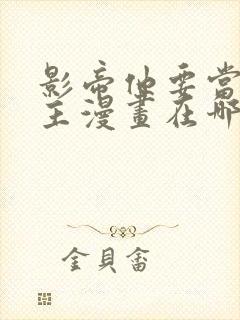 影帝他要當
主漫畫在哪
金貝畬